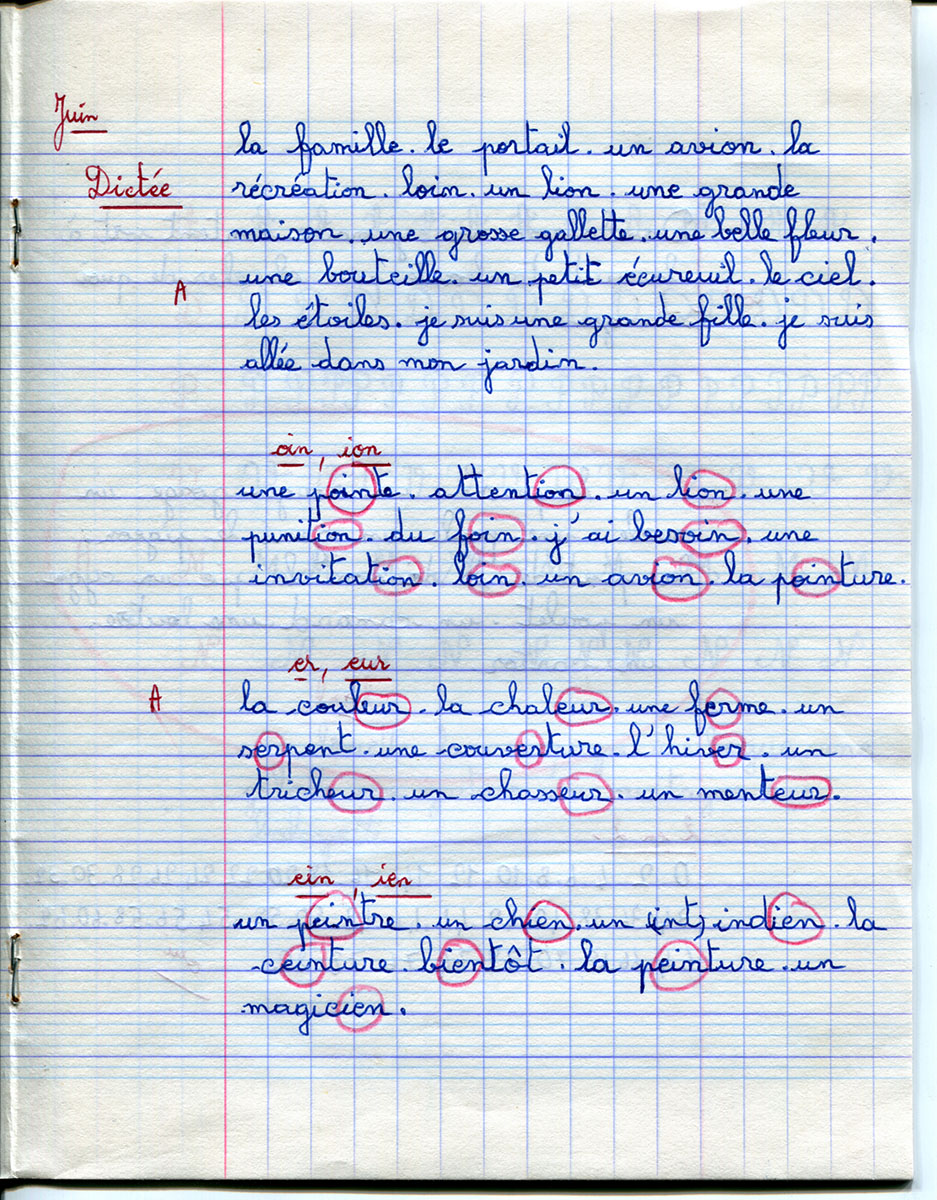 Juin
Dictée
la famille. le portail. un avion. la
récréation. loin. un lion. une grande
maison. une grosse gallette. une belle fleur.
une bouteille. un petit écureuil. le ciel.
A
les étoiles. je suis une grande fille. je suis
allée dans mon jardin.
oin, ion
une pointe. attention. un lion. une
punition. du foin. j'ai besoin. une
invitation. loin. un avion. la pointure.
er, eur
A
la couleur. la chaleur. une ferme. un
serpent. une couverture. l'hiver. un
tricheur. un chasseur. un menteur.
ein, ien
un peintre. un chien. un (int) indien. la
ceinture. bientôt. la peinture. un
magicien.